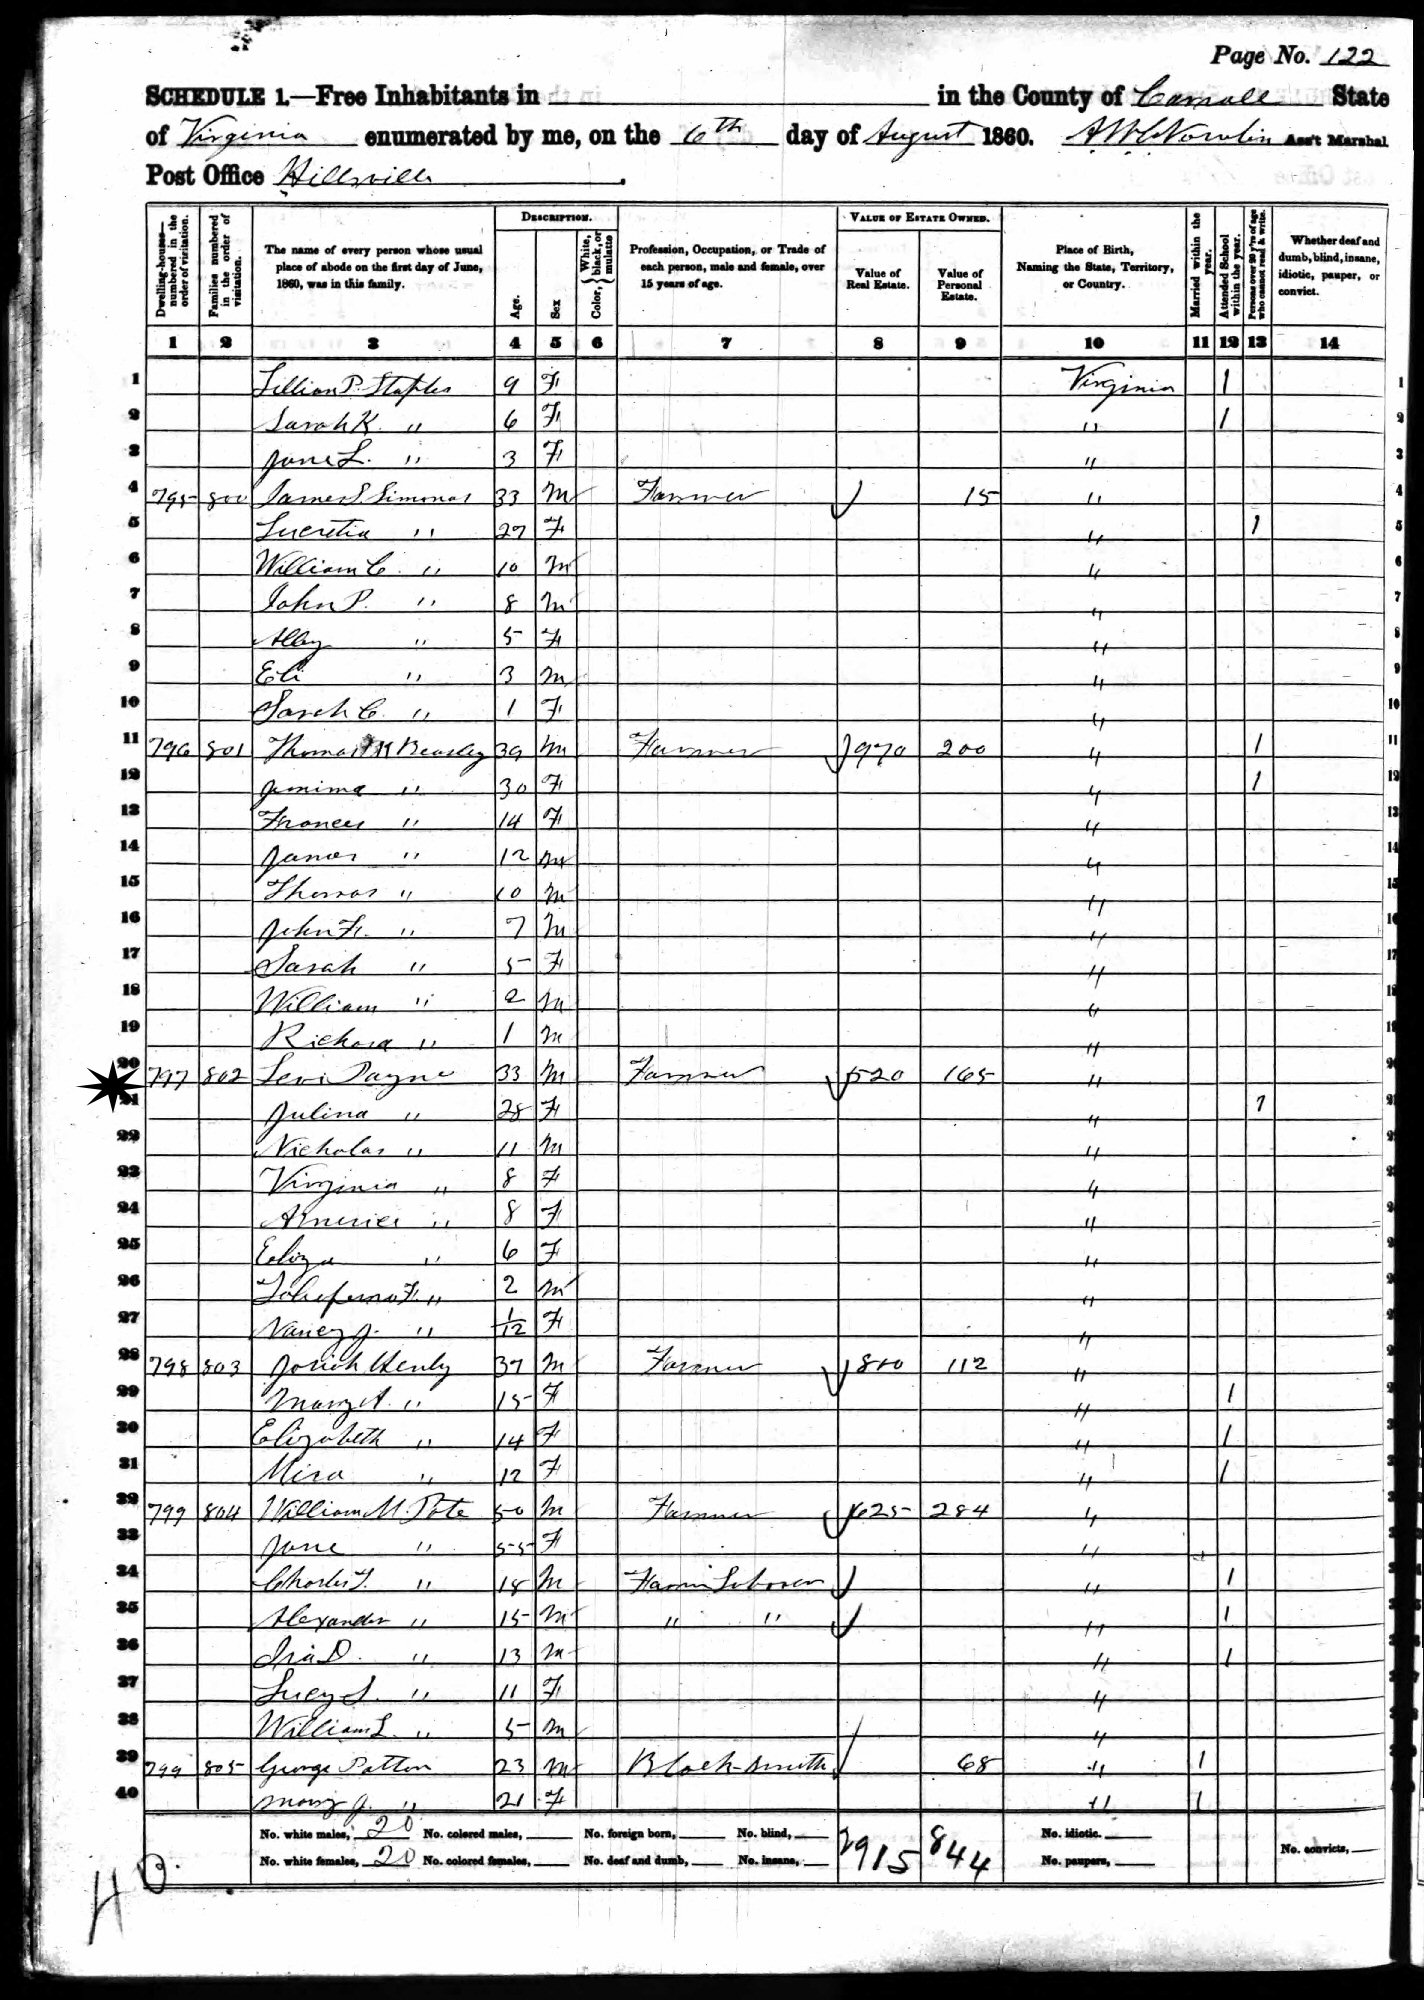 Page No. 122
SCHEDULE 1.—Free Inhabitants in in the County of Carroll State
of Virginia enumerated by me, on the 6th day of August 1860. Ass't Marshal
Post Office Hillsville
DESCRIPTION. VALUE OF ESTATE OWNED.
Dwelling-houses—numbered in the order of visitation. Families numbered in the order of visitation. The name of every person whose usual place of abode on the first day of June, 1860, was in this family. Age. Sex Color, White, black, or mulatto Profession, Occupation, or Trade of each person, male and female, over 15 years of age. Value of Real Estate. Value of Personal Estate. Place of Birth, Naming the State, Territory, or Country. Married within the year. Attended School within the year. Persons over 20 y'rs of age who cannot read & write. Whether deaf and dumb, blind, insane, idiotic, pauper, or convict.
1 2 3 4 5 6 7 8 9 10 11 12 13 14
1 Lillian P. Staples 9 F Virginia 1 1
2 Sarah K. " 6 F " 1 2
3 Jane L. " 3 F " 3
4 795 800 James S. Simonds 33 M Farmer 15 " 4
5 Lucretia " 27 F " 1 5
6 William C. " 10 M " 6
7 John P. " 8 M " 7
8 Alley " 5 F " 8
9 Eli " 3 M " 9
10 Sarah C. " 1 F " 10
11 796 801 Thomas K Beasley 39 M Farmer 970 200 " 1 11
12 Jemima " 30 F " 1 12
13 Frances " 14 F " 13
14 James " 12 M " 14
15 Thomas " 10 M " 15
16 John F. " 7 M "
17 Sarah " 5 F "
18 William " 2 M "
19 Richard " 1 M "
20 797 802 Levi Payne 33 M Farmer 520 165 "
21 Julina " 28 F " 1
22 Nicholas " 11 M "
23 Virginia " 8 F "
24 America " 8 F "
25 Eliza " 6 F "
26 Toliaferro F. " 2 M "
27 Nancy J. " 1/12 F "
28 798 803 Josiah Henly 37 M Farmer 800 112 "
29 Mary A. " 15 F " 1
30 Elizabeth " 14 F " 1
31 Mira " 12 F " 1
32 799 804 William M. Pate 50 M Farmer 625 284 "
33 Jane " 55 F "
34 Charles T. " 18 M Farm Laborer " 1
35 Alexander " 15 M " " " 1
36 Ira D. " 13 M " 1
37 Lucy S. " 11 F "
38 William L. " 5 M "
39 799 805 George Patton 23 M Black-smith 68 " 1
40 Mary J. " 21 F " 1
No. white males, 20 No. colored males, No. foreign born, No. blind, 2915 844 No. idiotic.
No. white females, 20 No. colored females, No. deaf and dumb, No. insane, No. paupers, No. convicts,
40.